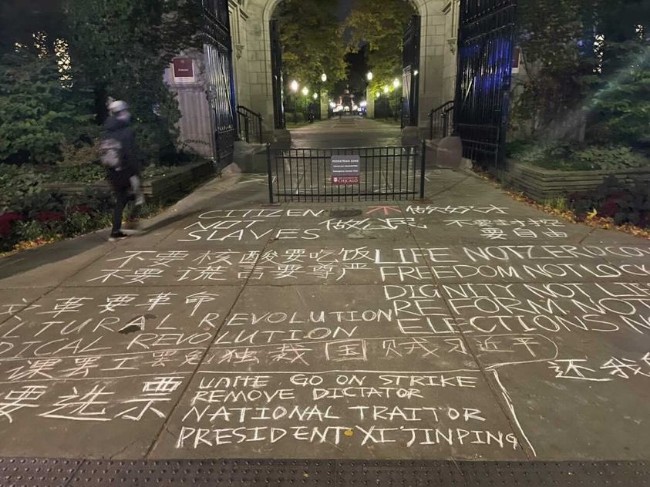 CITIZEN 不做奴才
NOT 做公民 不要封控
SLAVES 要自
不要核酸要吃饭 LIFE NOT ZERO-COV
不要谎言要尊严 FREEDOM NOT LOCK
DIGNITY NOT LIE
文革要革命 REFORM NOT
LTURAL REVOLUTION ELECTIONS NO
DICAL REVOLUTION
课罢工罢免独裁国贼习近平
还我
要选票
UNITE, GO ON STRIKE
REMOVE DICTATOR
NATIONAL TRAITOR
PRESIDENT XI JINPING